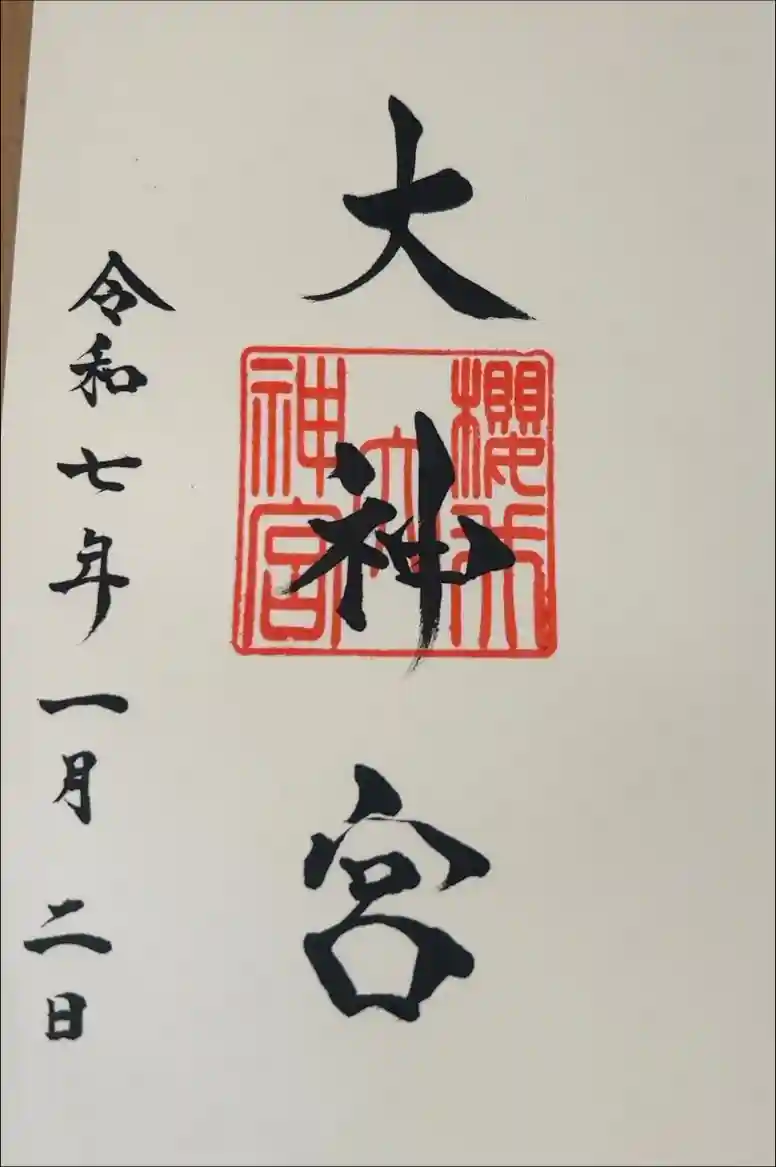 大神宮
櫻
神宮
令和七年一月二日